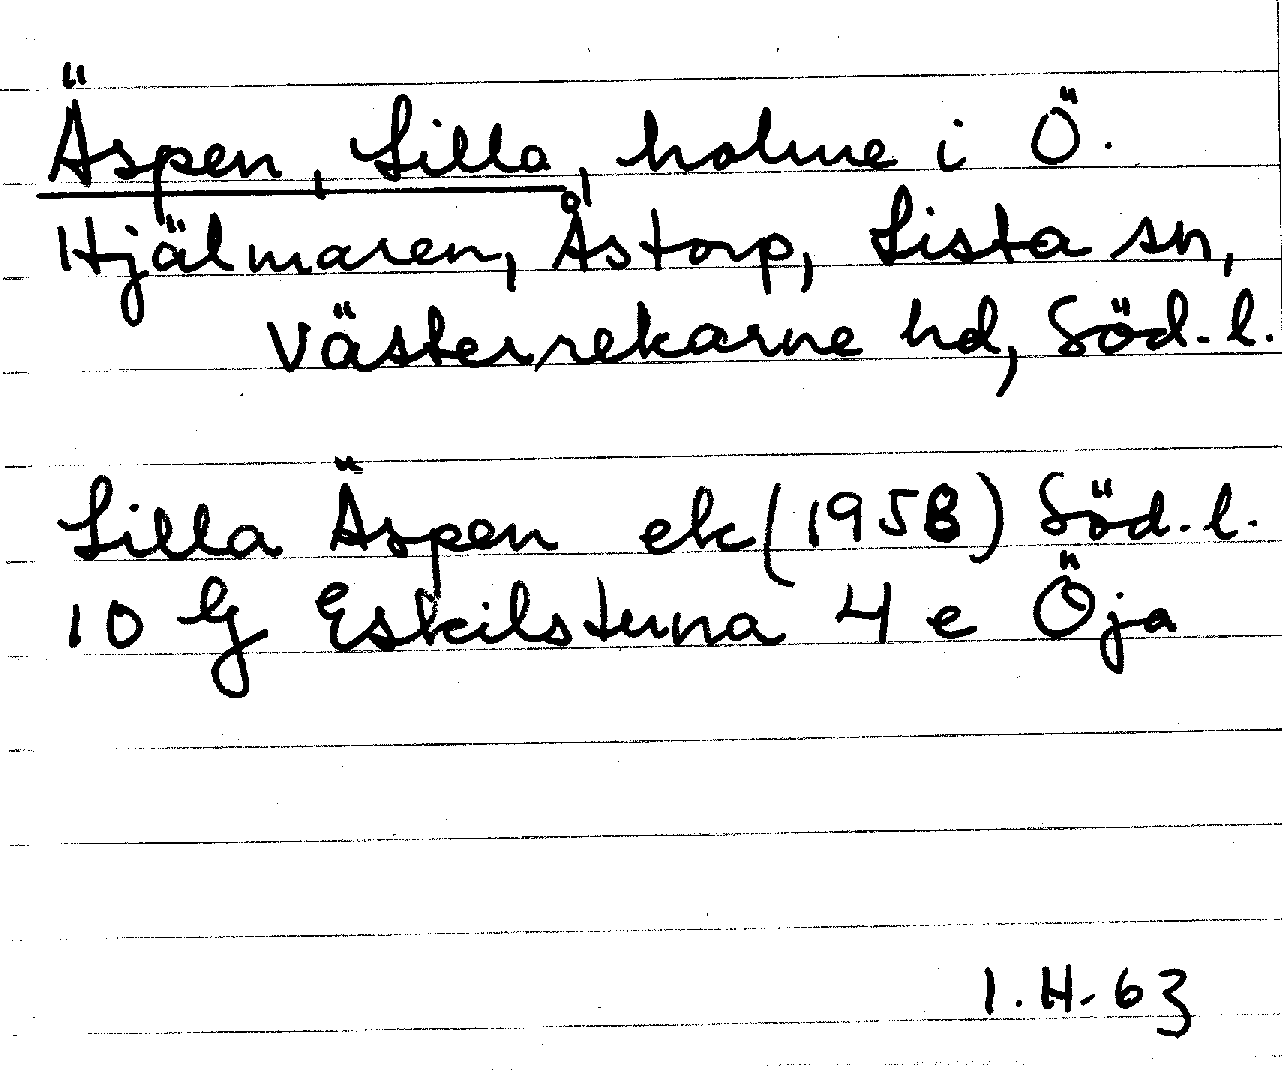 Äspen, Lilla, holme i Ö.
Hjälmaren, Åstorp, Lista sn,
Västerrekarne hd, Söd. l.
Lilla Äspen ek (1958) Söd. l.
10 G Eskilstuna 4 e Öja
1. H. 63